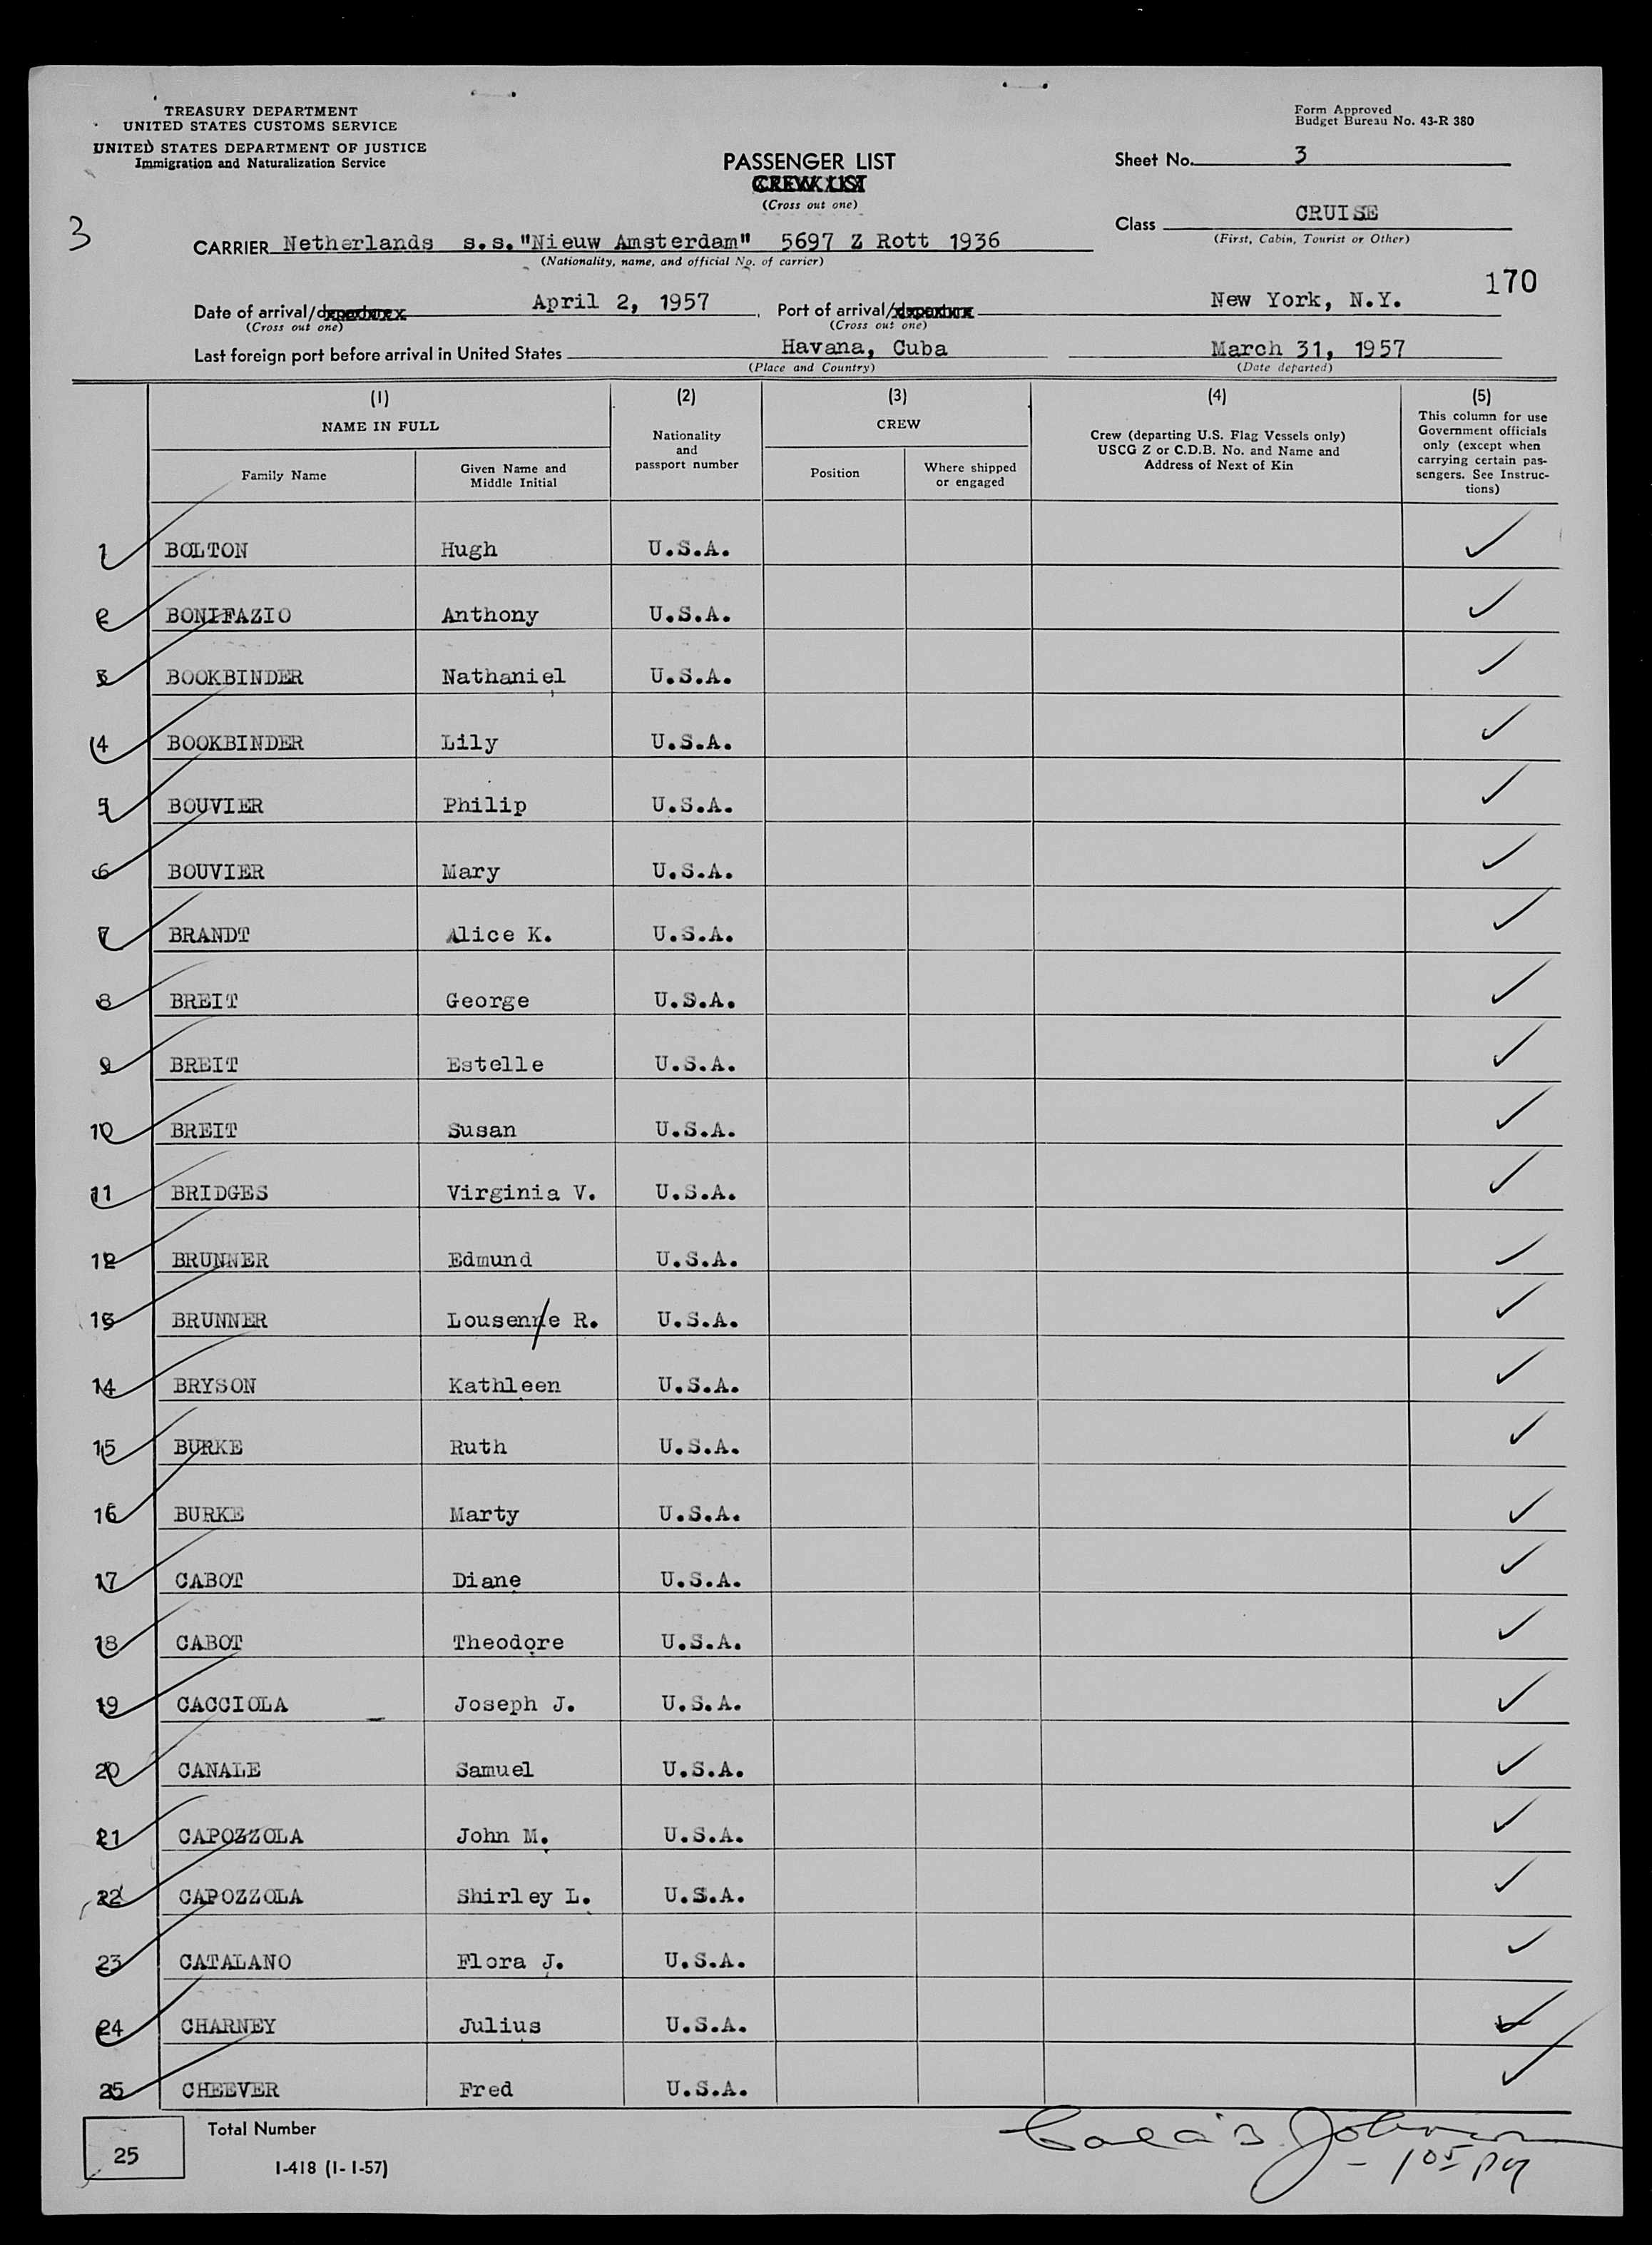 TREASURY DEPARTMENT
UNITED STATES CUSTOMS SERVICE
UNITED STATES DEPARTMENT OF JUSTICE
Immigration and Naturalization Service
Form Approved
Budget Bureau No. 43-R 380
PASSENGER LIST
CREW LIST
(Cross out one)
Sheet No. 3
3
Class CRUISE
(First, Cabin, Tourist or Other)
CARRIER Netherlands s.s. "Nieuw Amsterdam" 5697 Z Rott 1936
(Nationality, name, and official No. of carrier)
170
Date of arrival/departure April 2, 1957 Port of arrival/departure New York, N.Y.
(Cross out one) (Cross out one)
Last foreign port before arrival in United States Havana, Cuba March 31, 1957
(Place and Country) (Date departed)
(1) (2) (3) (4) (5)
NAME IN FULL
Family Name
Given Name and
Middle Initial
Nationality
and
passport number
CREW
Position
Where shipped
or engaged
Crew (departing U.S. Flag Vessels only)
USCG Z or C.D.B. No. and Name and
Address of Next of Kin
This column for use
Government officials
only (except when
carrying certain pas-
sengers. See Instruc-
tions)
1 BOLTON Hugh U.S.A.
2 BONIFAZIO Anthony U.S.A.
3 BOOKBINDER Nathaniel U.S.A.
4 BOOKBINDER Lily U.S.A.
5 BOUVIER Philip U.S.A.
6 BOUVIER Mary U.S.A.
7 BRANDT Alice K. U.S.A.
8 BREIT George U.S.A.
9 BREIT Estelle U.S.A.
10 BREIT Susan U.S.A.
11 BRIDGES Virginia V. U.S.A.
12 BRUNNER Edmund U.S.A.
13 BRUNNER Lousenne R. U.S.A.
14 BRYSON Kathleen U.S.A.
15 BURKE Ruth U.S.A.
16 BURKE Marty U.S.A.
17 CABOT Diane U.S.A.
18 CABOT Theodore U.S.A.
19 CACCIOLA Joseph J. U.S.A.
20 CANALE Samuel U.S.A.
21 CAPOZZOLA John M. U.S.A.
22 CAPOZZOLA Shirley L. U.S.A.
23 CATALANO Flora J. U.S.A.
24 CHARNEY Julius U.S.A.
25 CHEEVER Fred U.S.A.
25
Total Number
I-418 (1-1-57)